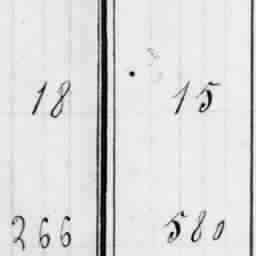 18 15
266 580